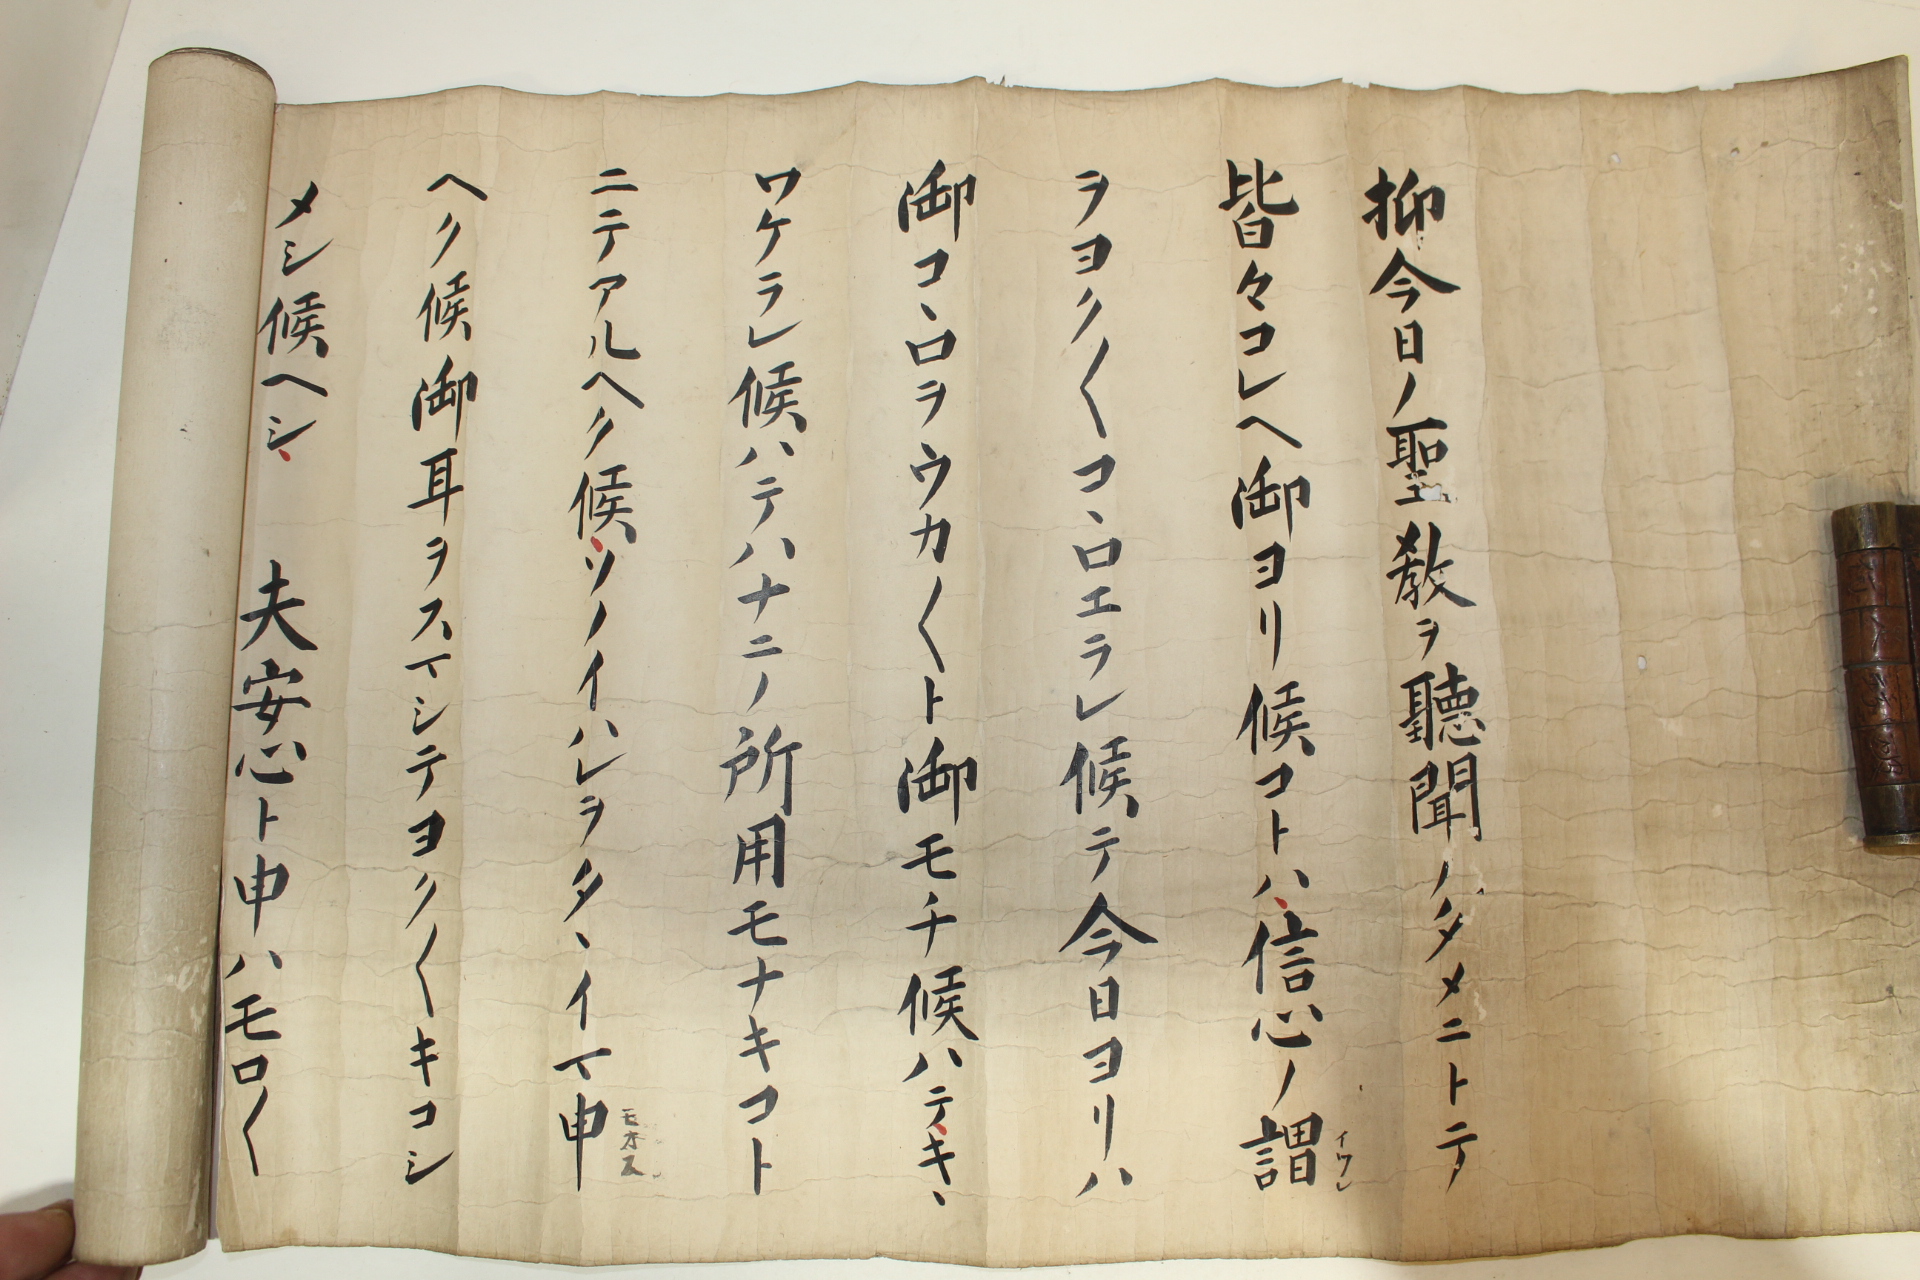 抑今日ノ聖教ヲ聴聞ノタメニトテ
皆々コレヘ御ヨリ候コトハ、信心ノ謂イワレ
ヲヨク〱コヽロエラレ候テ今日ヨリハ
御コヽロヲウカ〱ト御モチ候ハテ、キヽ
ワケラレ候ハテハナニノ所用モナキコト
ニテアルヘク候、ソノイハレヲタヽイマ申モオス
ヘク候御耳ヲスマシテヨク〱キコシ
メシ候ヘシ、 夫安心ト申ハモロ〱